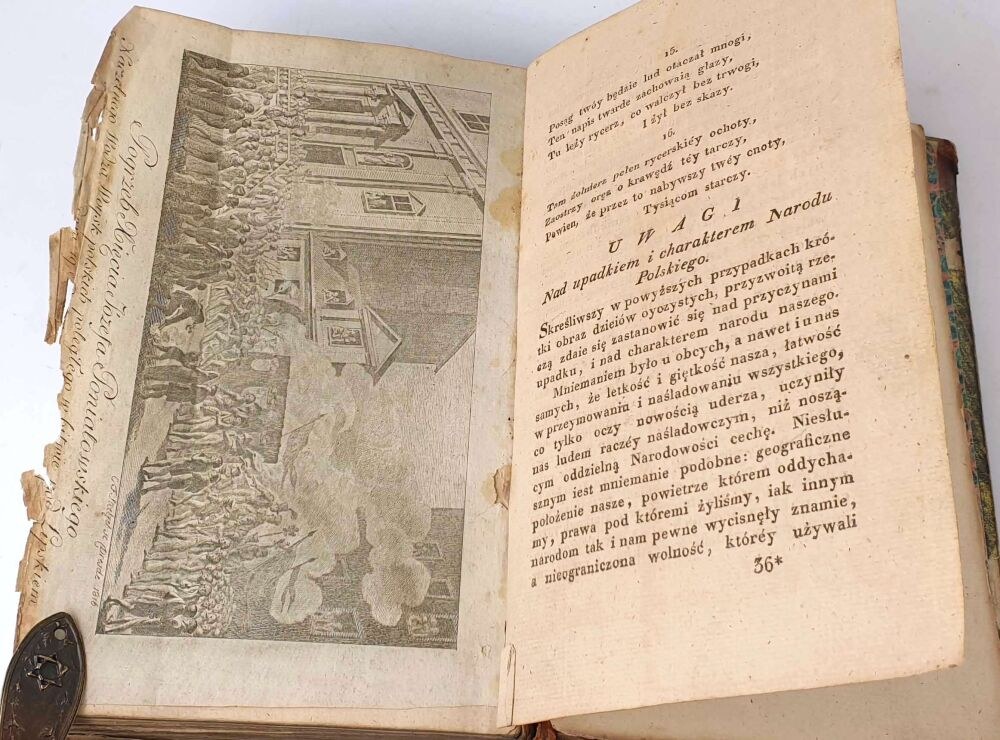 Pogrzeb Xięcia Józefa Poniatowskiego
Wodza Woysk polskich poległego w bitwie pod Lipskiem
1816
15.
Posąg twóy będzie lud otaczał mnogi,
Ten napis twarde zachowaią głazy,
Tu leży rycerz, co walczył bez trwogi,
I żył bez skazy.
16.
Tam żołnierz pełen rycerskiéy ochoty,
Zaostrzy oręż o krawędź téy tarczy,
Pewien, że przez to nabywszy twéy cnoty,
Tysiącom starczy.
UWAGI
Nad upadkiem i charakterem Narodu
Polskiego.
Skreśliwszy w powyższych przypadkach kró-
tki obraz dzieiów oyczystych, przyzwoitą rze-
czą zdaie się zastanowić się nad przyczynami
upadku, i nad charakterem narodu naszego.
Mniemaniem było u obcych, a nawet i u nas
samych, że letkość i giętkość nasza, łatwość
w przeymowaniu i naśladowaniu wszystkiego,
co tylko oczy nowością uderza, uczyniły
nas ludem raczéy naśladowczym, niż noszą-
cym oddzielną Narodowości cechę. Niesłu-
sznym iest mniemanie podobne: geograficzne
położenie nasze, powietrze którem oddycha-
my, prawa pod któremi żyliśmy, iak innym
narodom tak i nam pewne wycisnęły znamie,
a nieograniczona wolność, któréy używali
36*